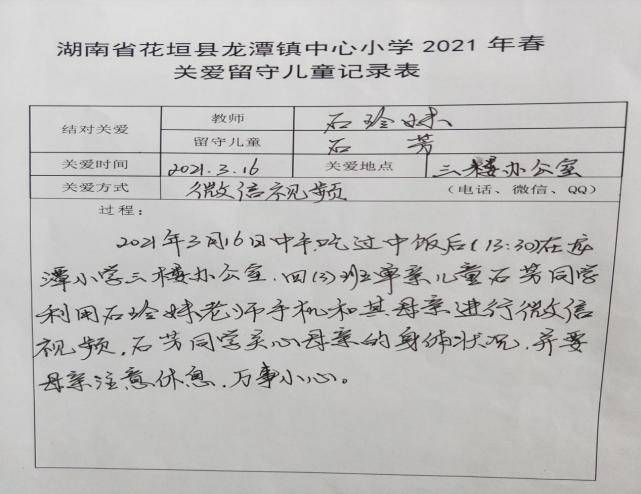 湖南省花垣县龙潭镇中心小学 2021 年春
关爱留守儿童记录表
结对关爱 教师 石玲妹
留守儿童 石芳
关爱时间 2021.3.16 关爱地点 三楼办公室
关爱方式 微信视频 (电话、微信、QQ)
过程:
2021年3月16日中午吃过中饭后(13:30)在龙
潭小学三楼办公室.四(3)班单亲儿童石芳同学
利用石玲妹老师手机和其母亲进行微信
视频,石芳同学关心母亲的身体状况,并要
母亲注意休息,万事小心。